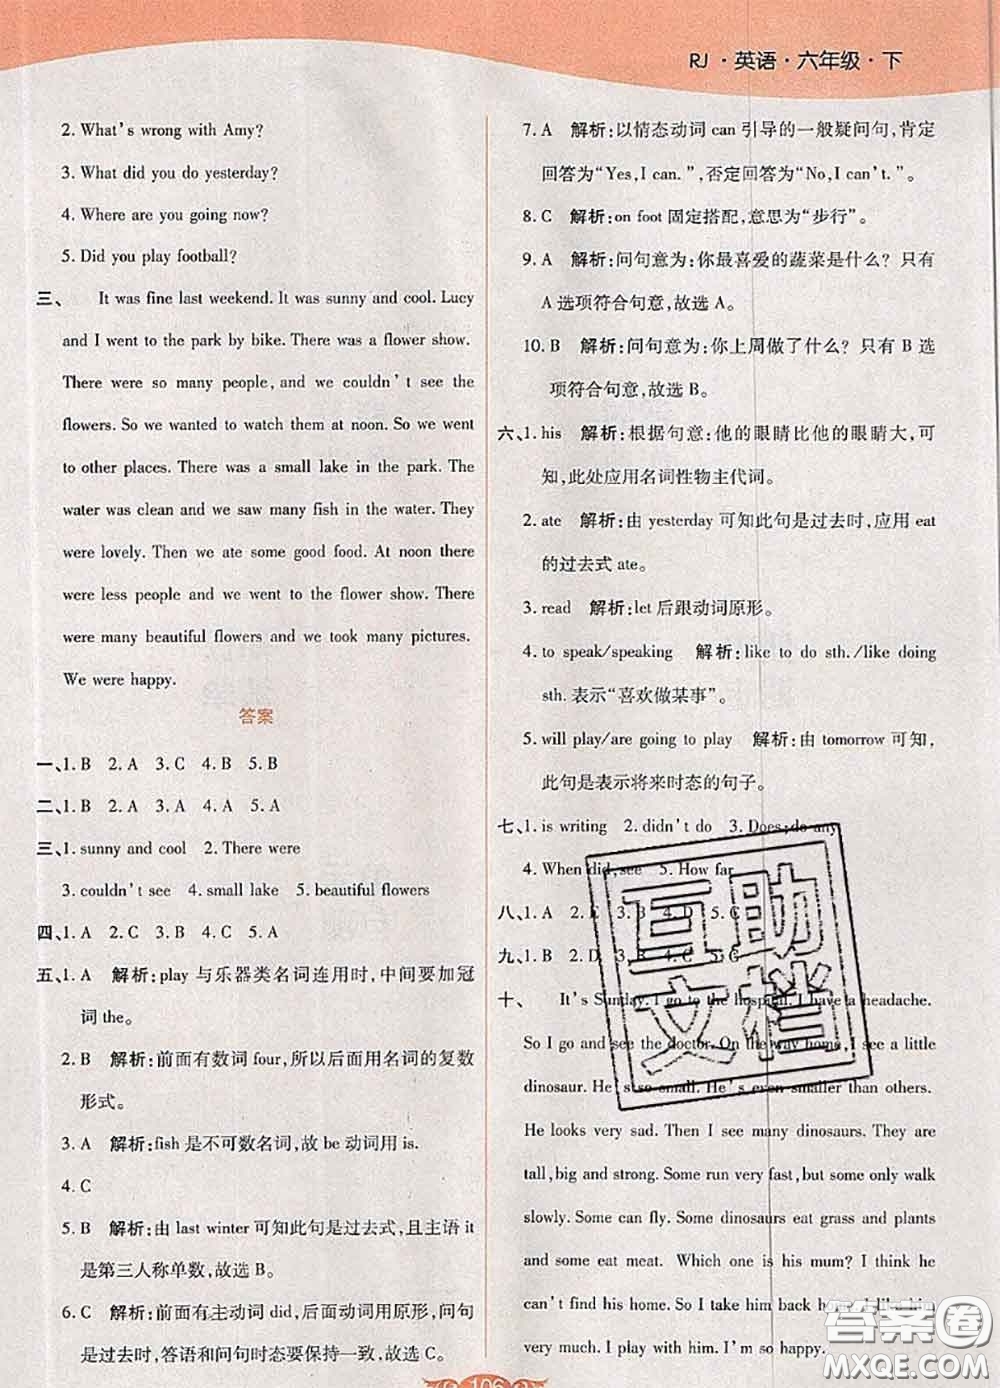 RJ · 英语 · 六年级 · 下
2. What's wrong with Amy?
3. What did you do yesterday?
4. Where are you going now?
5. Did you play football?
三、 It was fine last weekend. It was sunny and cool. Lucy
and I went to the park by bike. There was a flower show.
There were so many people, and we couldn't see the
flowers. So we wanted to watch them at noon. So we went
to other places. There was a small lake in the park. The
water was clean and we saw many fish in the water. They
were lovely. Then we ate some good food. At noon there
were less people and we went to the flower show. There
were many beautiful flowers and we took many pictures.
We were happy.
答案
一、1. B 2. A 3. C 4. B 5. B
二、1. B 2. A 3. A 4. A 5. A
三、1. sunny and cool 2. There were
3. couldn't see 4. small lake 5. beautiful flowers
四、1. A 2. C 3. B 4. C 5. A
五、1. A 解析:play 与乐器类名词连用时,中间要加冠
词 the。
2. B 解析:前面有数词 four,所以后面用名词的复数
形式。
3. A 解析:fish 是不可数名词,故 be 动词用 is.
4. C
5. B 解析:由 last winter 可知此句是过去式,且主语 it
是第三人称单数,故选 B。
6. C 解析:前面有主动词 did,后面动词用原形,问句
是过去时,答语和问句时态要保持一致,故选 C。
7. A 解析:以情态动词 can 引导的一般疑问句,肯定
回答为“Yes,I can.”,否定回答为“No,I can't.”。
8. C 解析:on foot 固定搭配,意思为“步行”。
9. A 解析:问句意为:你最喜爱的蔬菜是什么? 只有
A 选项符合句意,故选 A。
10. B 解析:问句意为:你上周做了什么? 只有 B 选
项符合句意,故选 B。
六、1. his 解析:根据句意:他的眼睛比他的眼睛大,可
知,此处应用名词性物主代词。
2. ate 解析:由 yesterday 可知此句是过去时,应用 eat
的过去式 ate。
3. read 解析:let 后跟动词原形。
4. to speak/speaking 解析:like to do sth./like doing
sth. 表示“喜欢做某事”。
5. will play/are going to play 解析:由 tomorrow 可知,
此句是表示将来时态的句子。
七、1. is writing 2. didn't do 3. Does;do any
4. When did,see 5. How far
八、1. A 2. E 3. B 4. D 5. C
九、1. B 2. 3. B 4. 5. C
十、 It's Sunday. I go to the hospital. I have a headache.
So I go and see the doctor. On the way home, I see a little
dinosaur. He is so small. He's even smaller than others.
He looks very sad. Then I see many dinosaurs. They are
tall,big and strong. Some run very fast,but some only walk
slowly. Some can fly. Some dinosaurs eat grass and plants
and some eat meat. Which one is his mum? I think he
can't find his home. So I take him back home. I like him
very much. I'm so happy.
互助
文档
答案圈
MXQE.COM
106